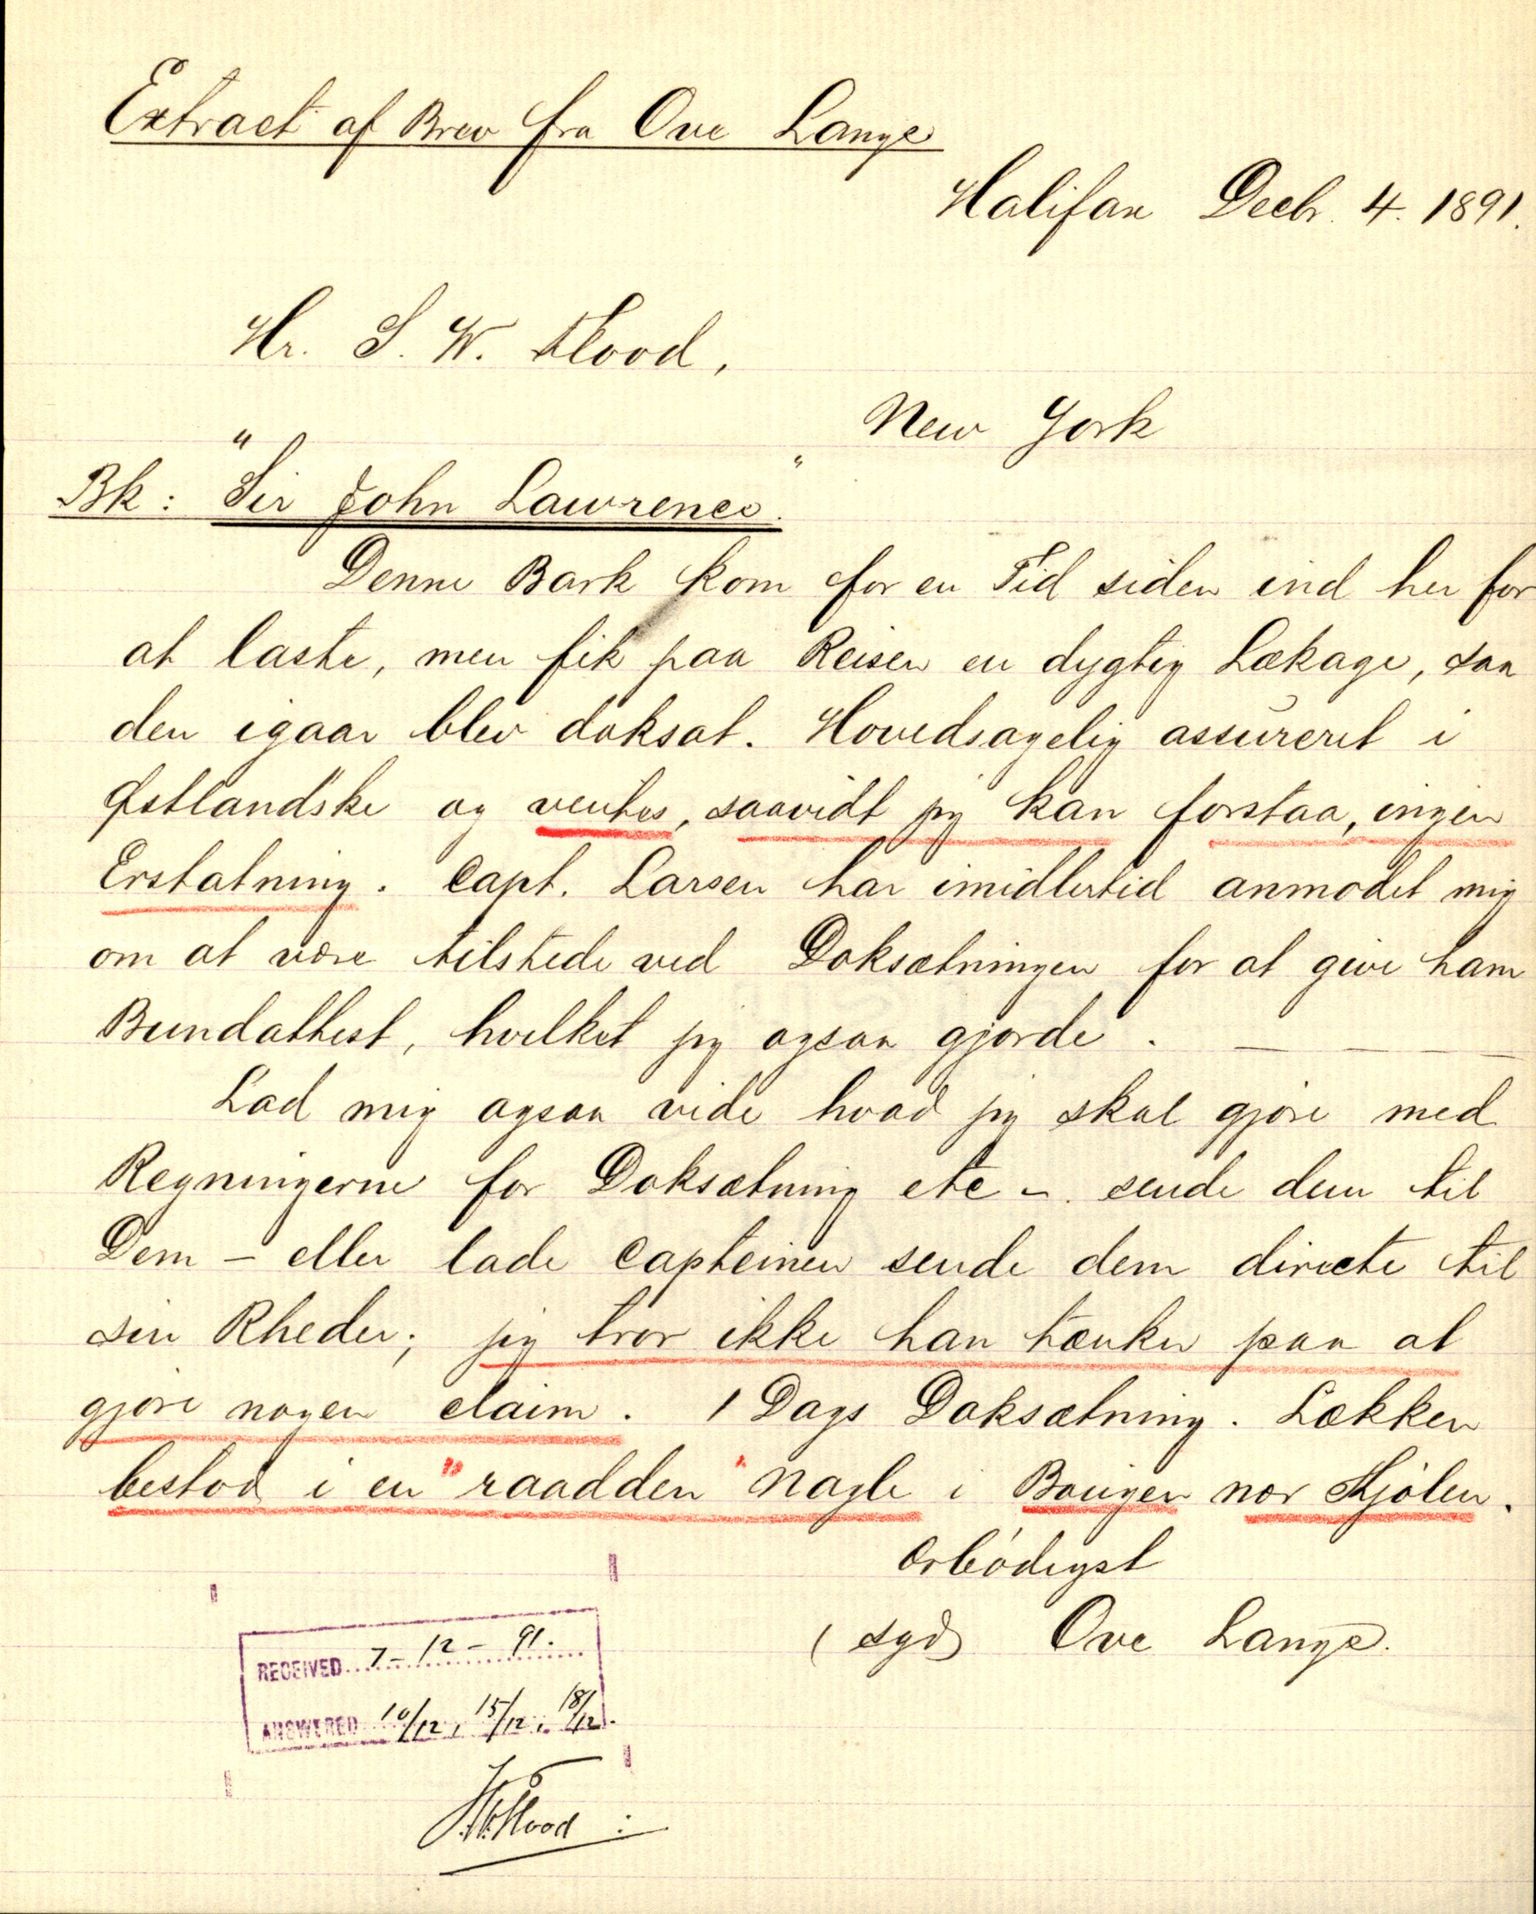 Extract af Brev fra Ove Lange
Halifax Decbr. 4. 1891.
Hr. S. W. Flood,
New York
Bk: "Sir John Lawrence."
Denne Bark kom for en Tid siden ind her for
at laste, men fik paa Reisen en dygtig Lækage, saa
den igaar blev doksat. Hovedsagelig assureret i
Østlandske og ventes, saavidt jeg kan forstaa, ingen
Erstatning. Capt. Larsen har imidlertid anmodet mig
om at være tilstede ved Doksætningen for at give ham
Bundattest, hvilket jeg ogsaa gjorde. — — —
Lad mig ogsaa vide hvad jeg skal gjøre med
Regningerne for Doksætning etc -. sende dem til
Dem - eller lade Capteinen sende dem directe til
sin Rheder; jeg tror ikke han tænker paa at
gjøre nogen claim. 1 Dags Doksætning. Lækken
bestod i en "raadden" Nagle i Bougen nær Kjølen.
Ærbødigst
(sgd) Ove Lange.
RECEIVED 7-12-91.
ANSWERED 10/12, 15/12, 18/12.
S.W. Flood